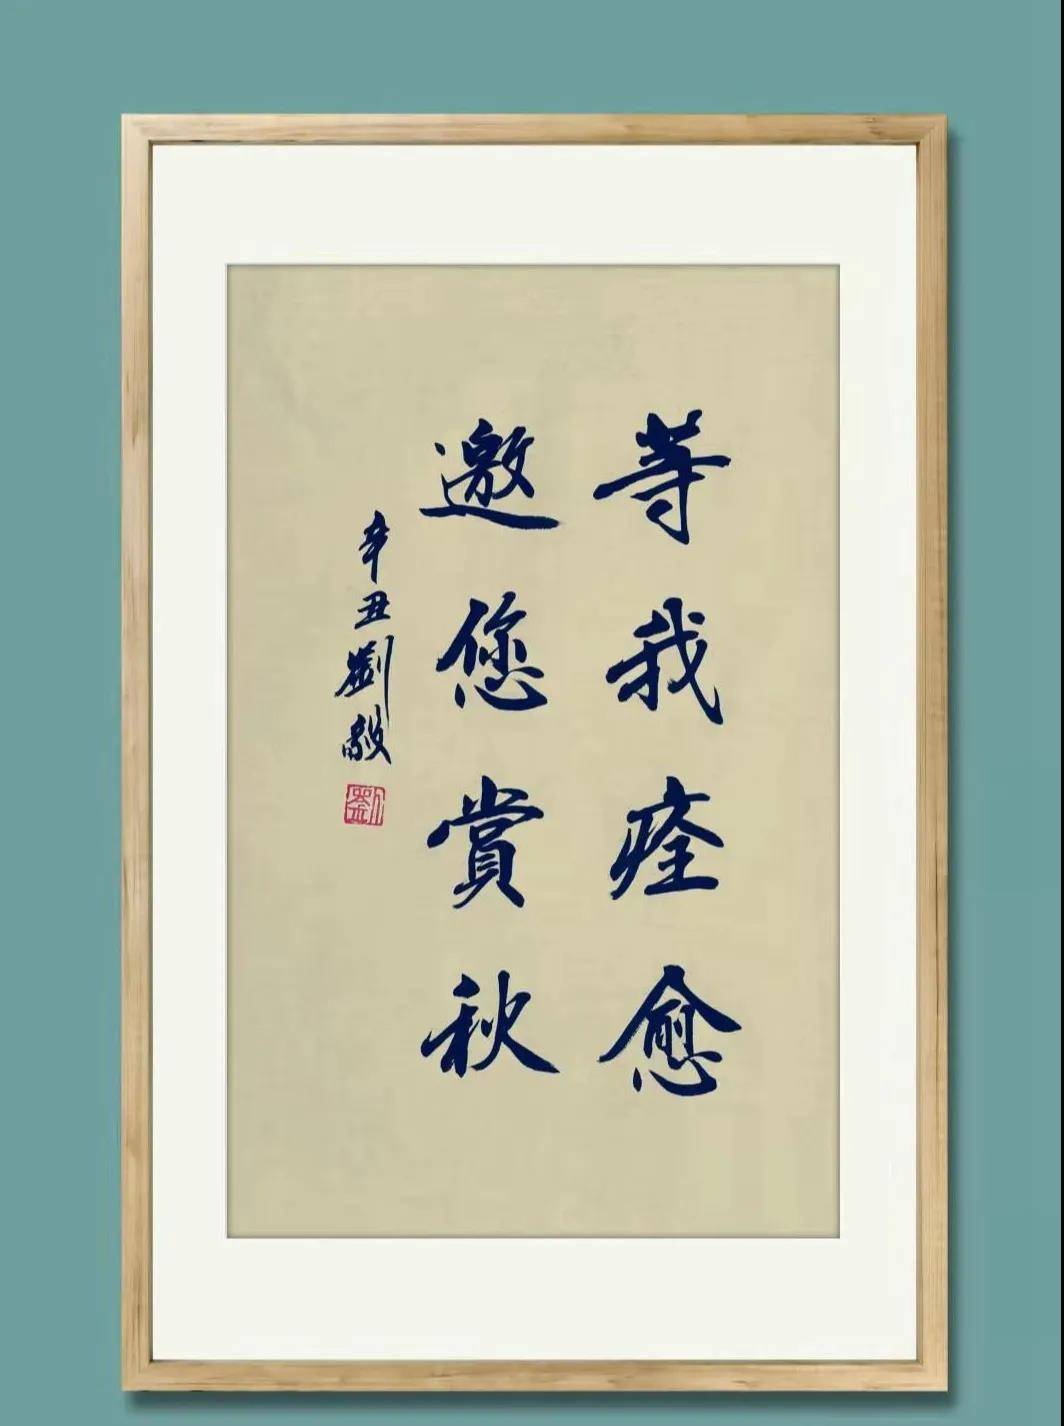 等我痊愈
邀您賞秋
辛丑劉毅
劉